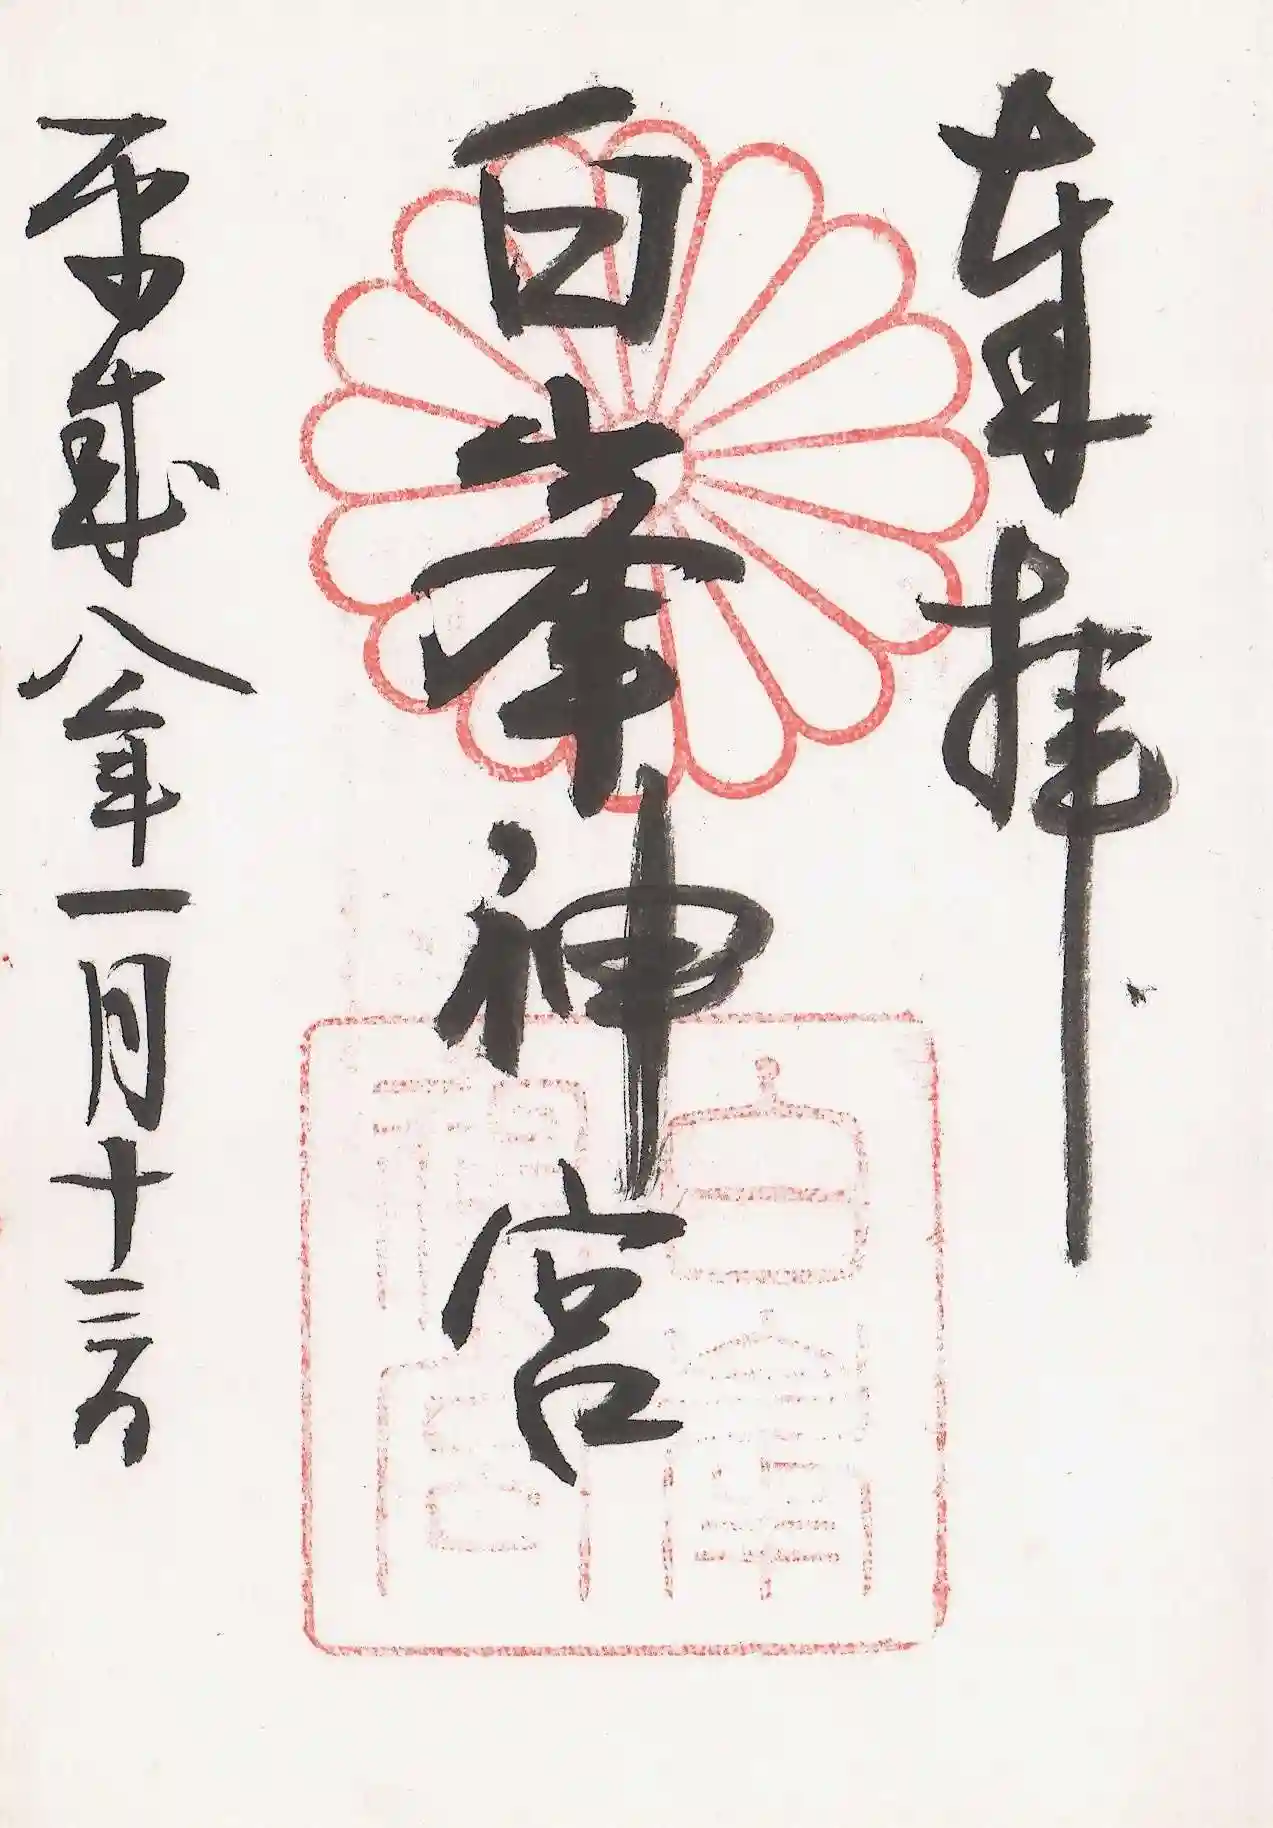 奉拝
白峯神宮
平成八年一月十三日
白峯
神宮